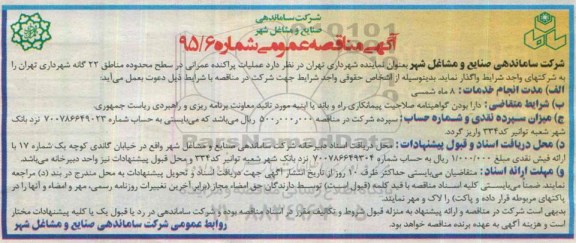 شرکت ساماندهی
صنایع و مشاغل شهر
آگهی مناقصه عمومی شماره ۹۵/۶
شرکت ساماندهی صنایع و مشاغل شهر بعنوان نماینده شهرداری تهران در نظر دارد عملیات پراکنده عمرانی در سطح محدوده مناطق ۲۲ گانه شهرداری تهران را
به شرکتهای واجد شرایط واگذار نماید. بدینوسیله از اشخاص حقوقی واجد شرایط جهت شرکت در مناقصه با شرایط ذیل دعوت بعمل می‌آید:
الف) مدت انجام خدمات: ۸ ماه شمسی
ب) شرایط متقاضی: دارا بودن گواهینامه صلاحیت پیمانکاری راه و باند یا ابنیه مورد تائید معاونت برنامه ریزی و راهبردی ریاست جمهوری.
ج) میزان سپرده نقدی و شماره حساب: سپرده شرکت در مناقصه ۵۰۰,۰۰۰,۰۰۰ ریال می‌باشد که می‌بایستی به حساب شماره ۷۰۰۷۸۶۶۴۹۰۲۳ نزد بانک
شهر شعبه توانیر کد۳۳۴ واریز گردد.
د) محل دریافت اسناد و قبول پیشنهادات: محل دریافت اسناد دبیرخانه شرکت ساماندهی صنایع و مشاغل شهر واقع در خیابان گاندی کوچه یک شماره ۱۷ با
ارائه فیش نقدی مبلغ ۱/۰۰۰/۰۰۰ ریال به حساب شماره ۷۰۰۷۸۶۶۴۹۳۰۴ نزد بانک شهر شعبه توانیر کد۳۳۴ و محل قبول پیشنهادات نیز واحد دبیرخانه می‌باشد.
و) مهلت ارائه اسناد: متقاضیان می‌بایستی حداکثر ظرف ۱۰ روز از تاریخ انتشار آگهی جهت دریافت اسناد و تحویل پیشنهادات به محل مندرج در بند (د) مراجعه
نمایند. ضمناً می‌بایستی کلیه اسناد مناقصه با قید کلمه (قبول است) توسط دارندگان حق امضاء مجاز (برابر آخرین تغییرات روزنامه رسمی، مهر و امضاء و آنها را در
پاکتهای مربوطه قرار داده و پاکت) را لاک و مهر نمایند.
بدیهی است شرکت در مناقصه و ارائه پیشنهاد به منزله قبول شروط و تکالیف مقرر در اسناد مناقصه بوده و شرکت ساماندهی در رد یا قبول یک یا کلیه پیشنهادات مختار
است و هزینه آگهی به عهده برنده مناقصه خواهد بود.
روابط عمومی شرکت ساماندهی صنایع و مشاغل شهر